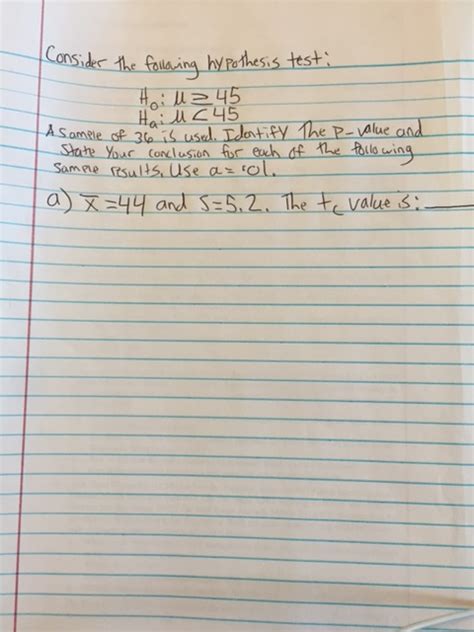 Consider the following hypothesis test:
H₀: μ ≥ 45
Hₐ: μ < 45
A sample of 36 is used. Identify The P-value and
State Your conclusion for each of the following
Sample results. Use α = .01.
a) x̄ = 44 and S = 5.2. The t꜀ value is: ____